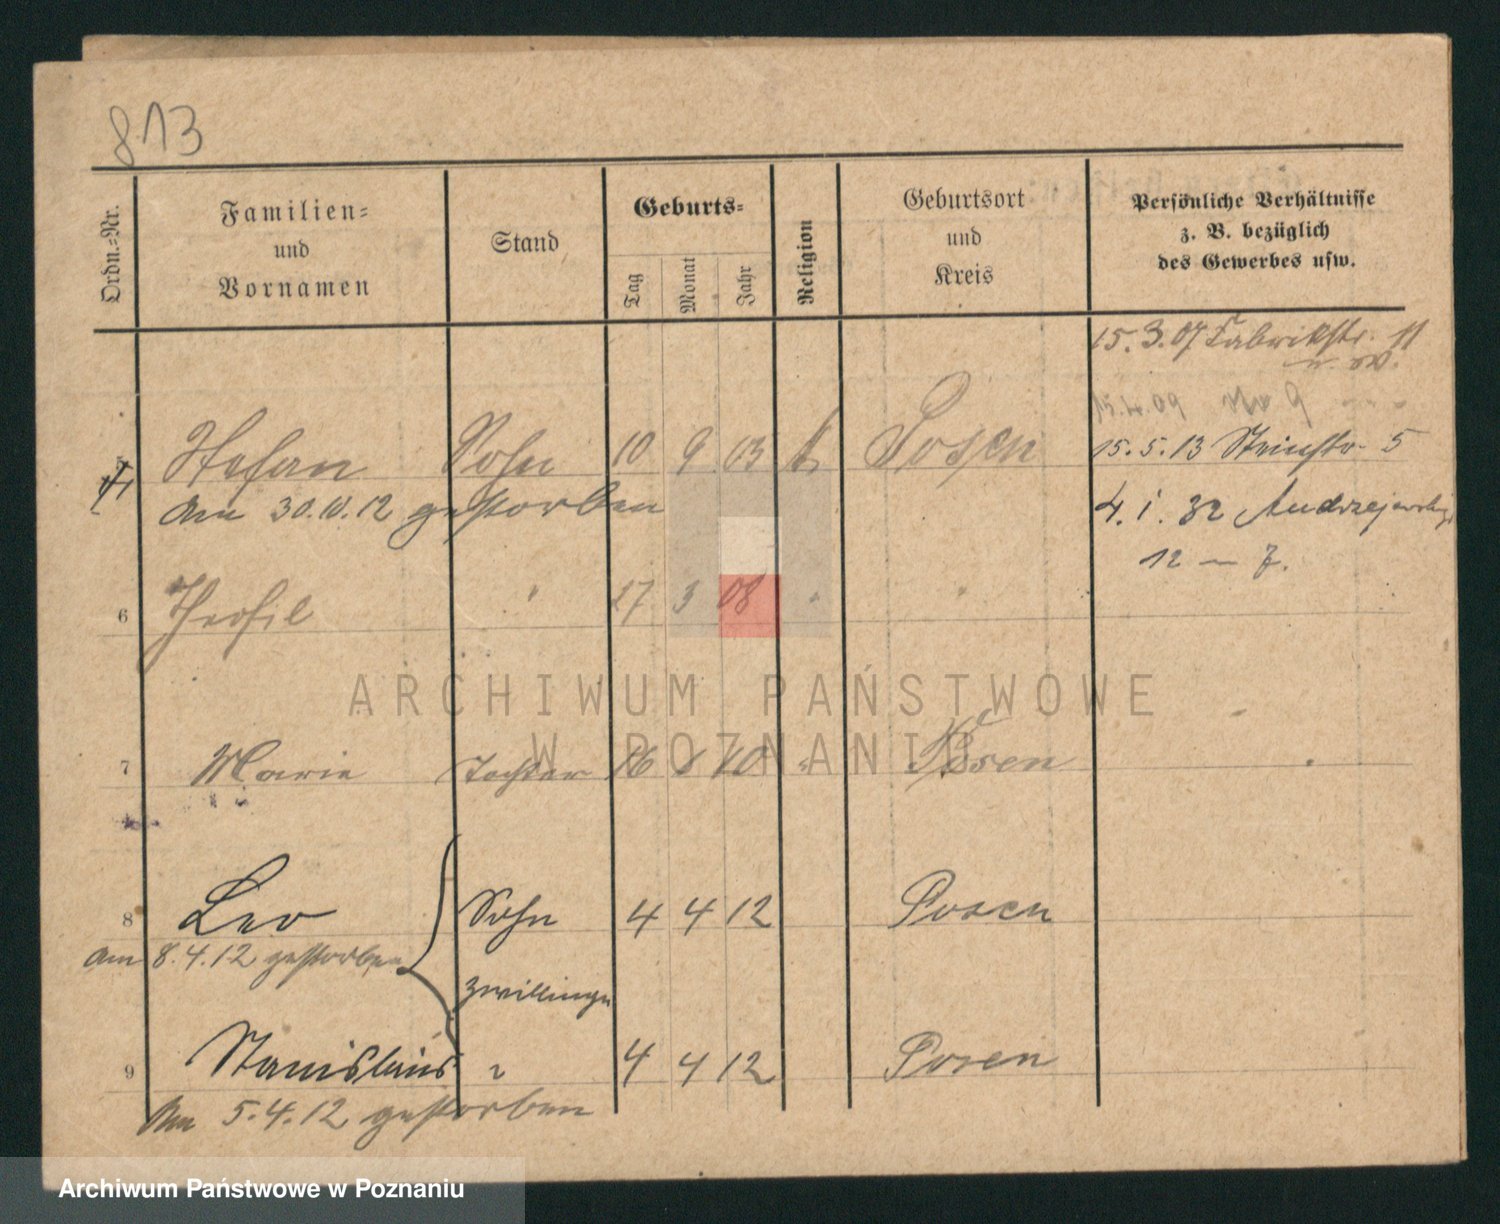 813
Ordn.=Nr.
Familien=
und
Vornamen
Stand
Geburts=
Tag
Monat
Jahr
Religion
Geburtsort
und
Kreis
Persönliche Verhältnisse
z. B. bezüglich
des Gewerbes usw.
15.3.07 Fabrikstr. 11
15.4.09 No 9
5 Stefan Sohn 10 9 03 k Posen 15.5.13 Steinstr. 5
am 30.10.12 gestorben
4.1.32 Andrzejewskiego
12 — 7.
6 Theofil " 27 3 08 " "
7 Marie Tochter 16 10 " Posen
8 Leo Sohn 4 4 12 Posen
am 8.4.12 gestorben
Zwillinge
9 Stanislaus " 4 4 12 Posen
Am 5.4.12 gestorben
ARCHIWUM PAŃSTWOWE
W POZNANIU
Archiwum Państwowe w Poznaniu